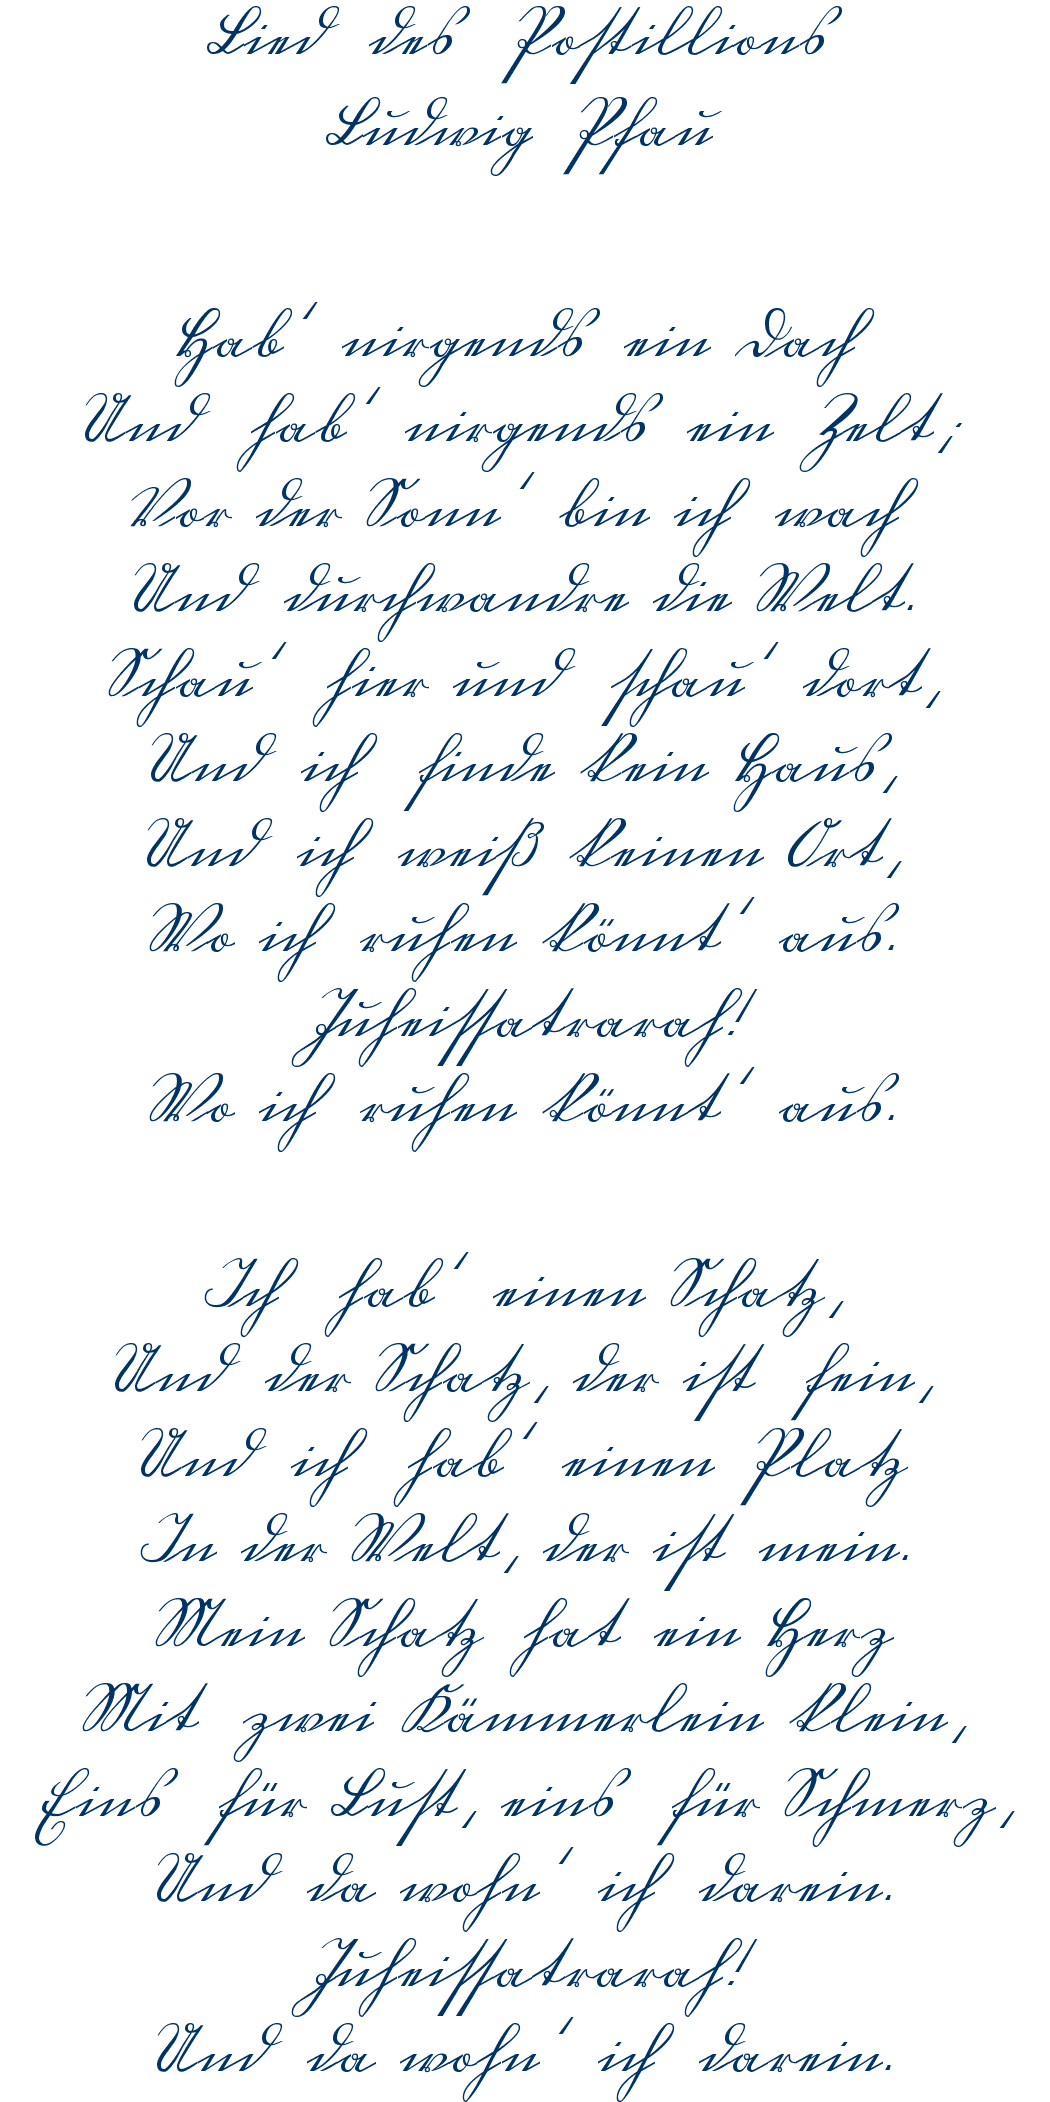 Lied des Postillions
Ludwig Pfau
Hab' nirgends ein Dach
Und hab' nirgends ein Zelt;
Vor der Sonn' bin ich wach
Und durchwandre die Welt.
Schau' hier und schau' dort,
Und ich finde kein Haus,
Und ich weiß keinen Ort,
Wo ich ruhen könnt' aus.
Juheissatrarah!
Wo ich ruhen könnt' aus.
Ich hab' einen Schatz,
Und der Schatz, der ist fein,
Und ich hab' einen Platz
In der Welt, der ist mein.
Mein Schatz hat ein Herz
Mit zwei Kämmerlein klein,
Eins für Lust, eins für Schmerz,
Und da wohn' ich darein.
Juheissatrarah!
Und da wohn' ich darein.